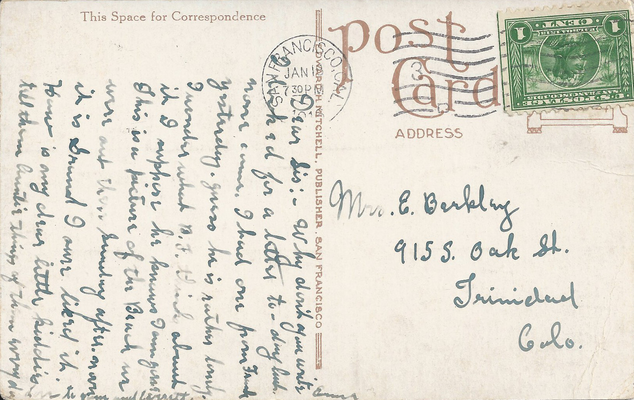 This Space for Correspondence
post
Card
ADDRESS
SAN FRANCISCO, CAL.
JAN 1
730 PM
MITCHELL, PUBLISHER, SAN FRANCISCO
1 CENT 1
Mrs. E. Barkley
915 S. Oak St.
Trinidad
Colo.
Dear Sis:- Why dont you write
I looked for a letter to-day but
none came. I had one from Frank
yesterday. guess he is rather lonely.
I wonder what about
it I suppose he knows I am gone
This is a picture of the Beach we
were out there Sunday after noon
it is Grand I sure liked it
How is my dear little kiddies
tell them Auntie thinks of them every day